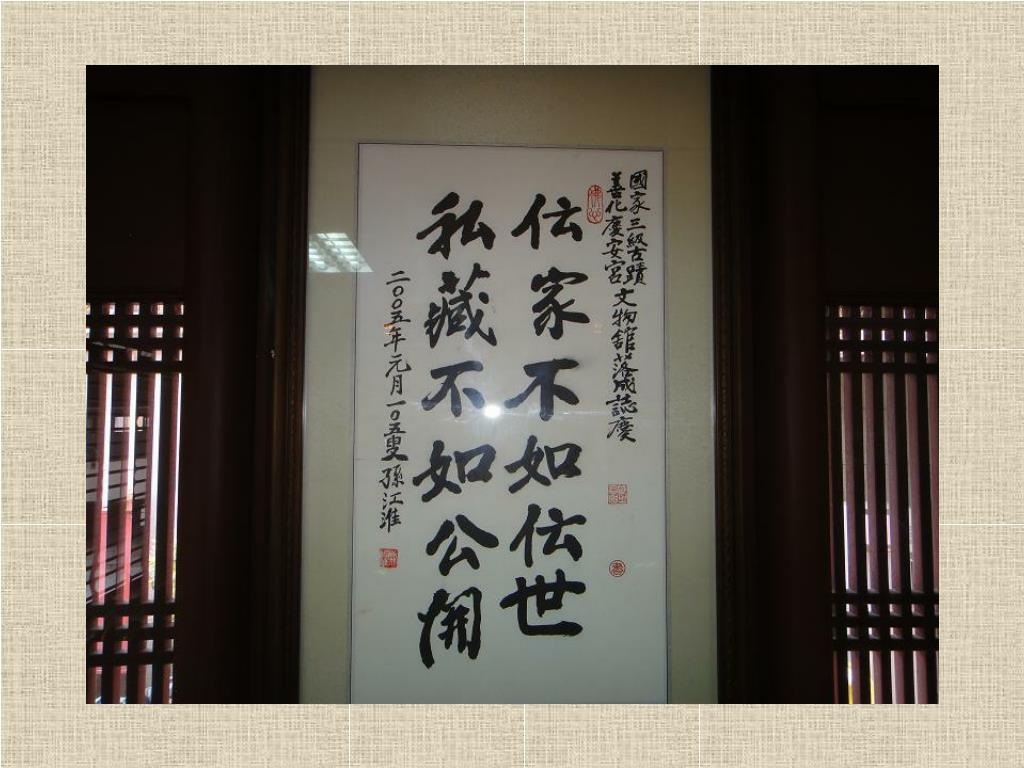 國家三級古蹟
善化慶安宮
文物館落成誌慶
伝家不如伝世
私藏不如公開
二００五年元月一０五叟孫江淮